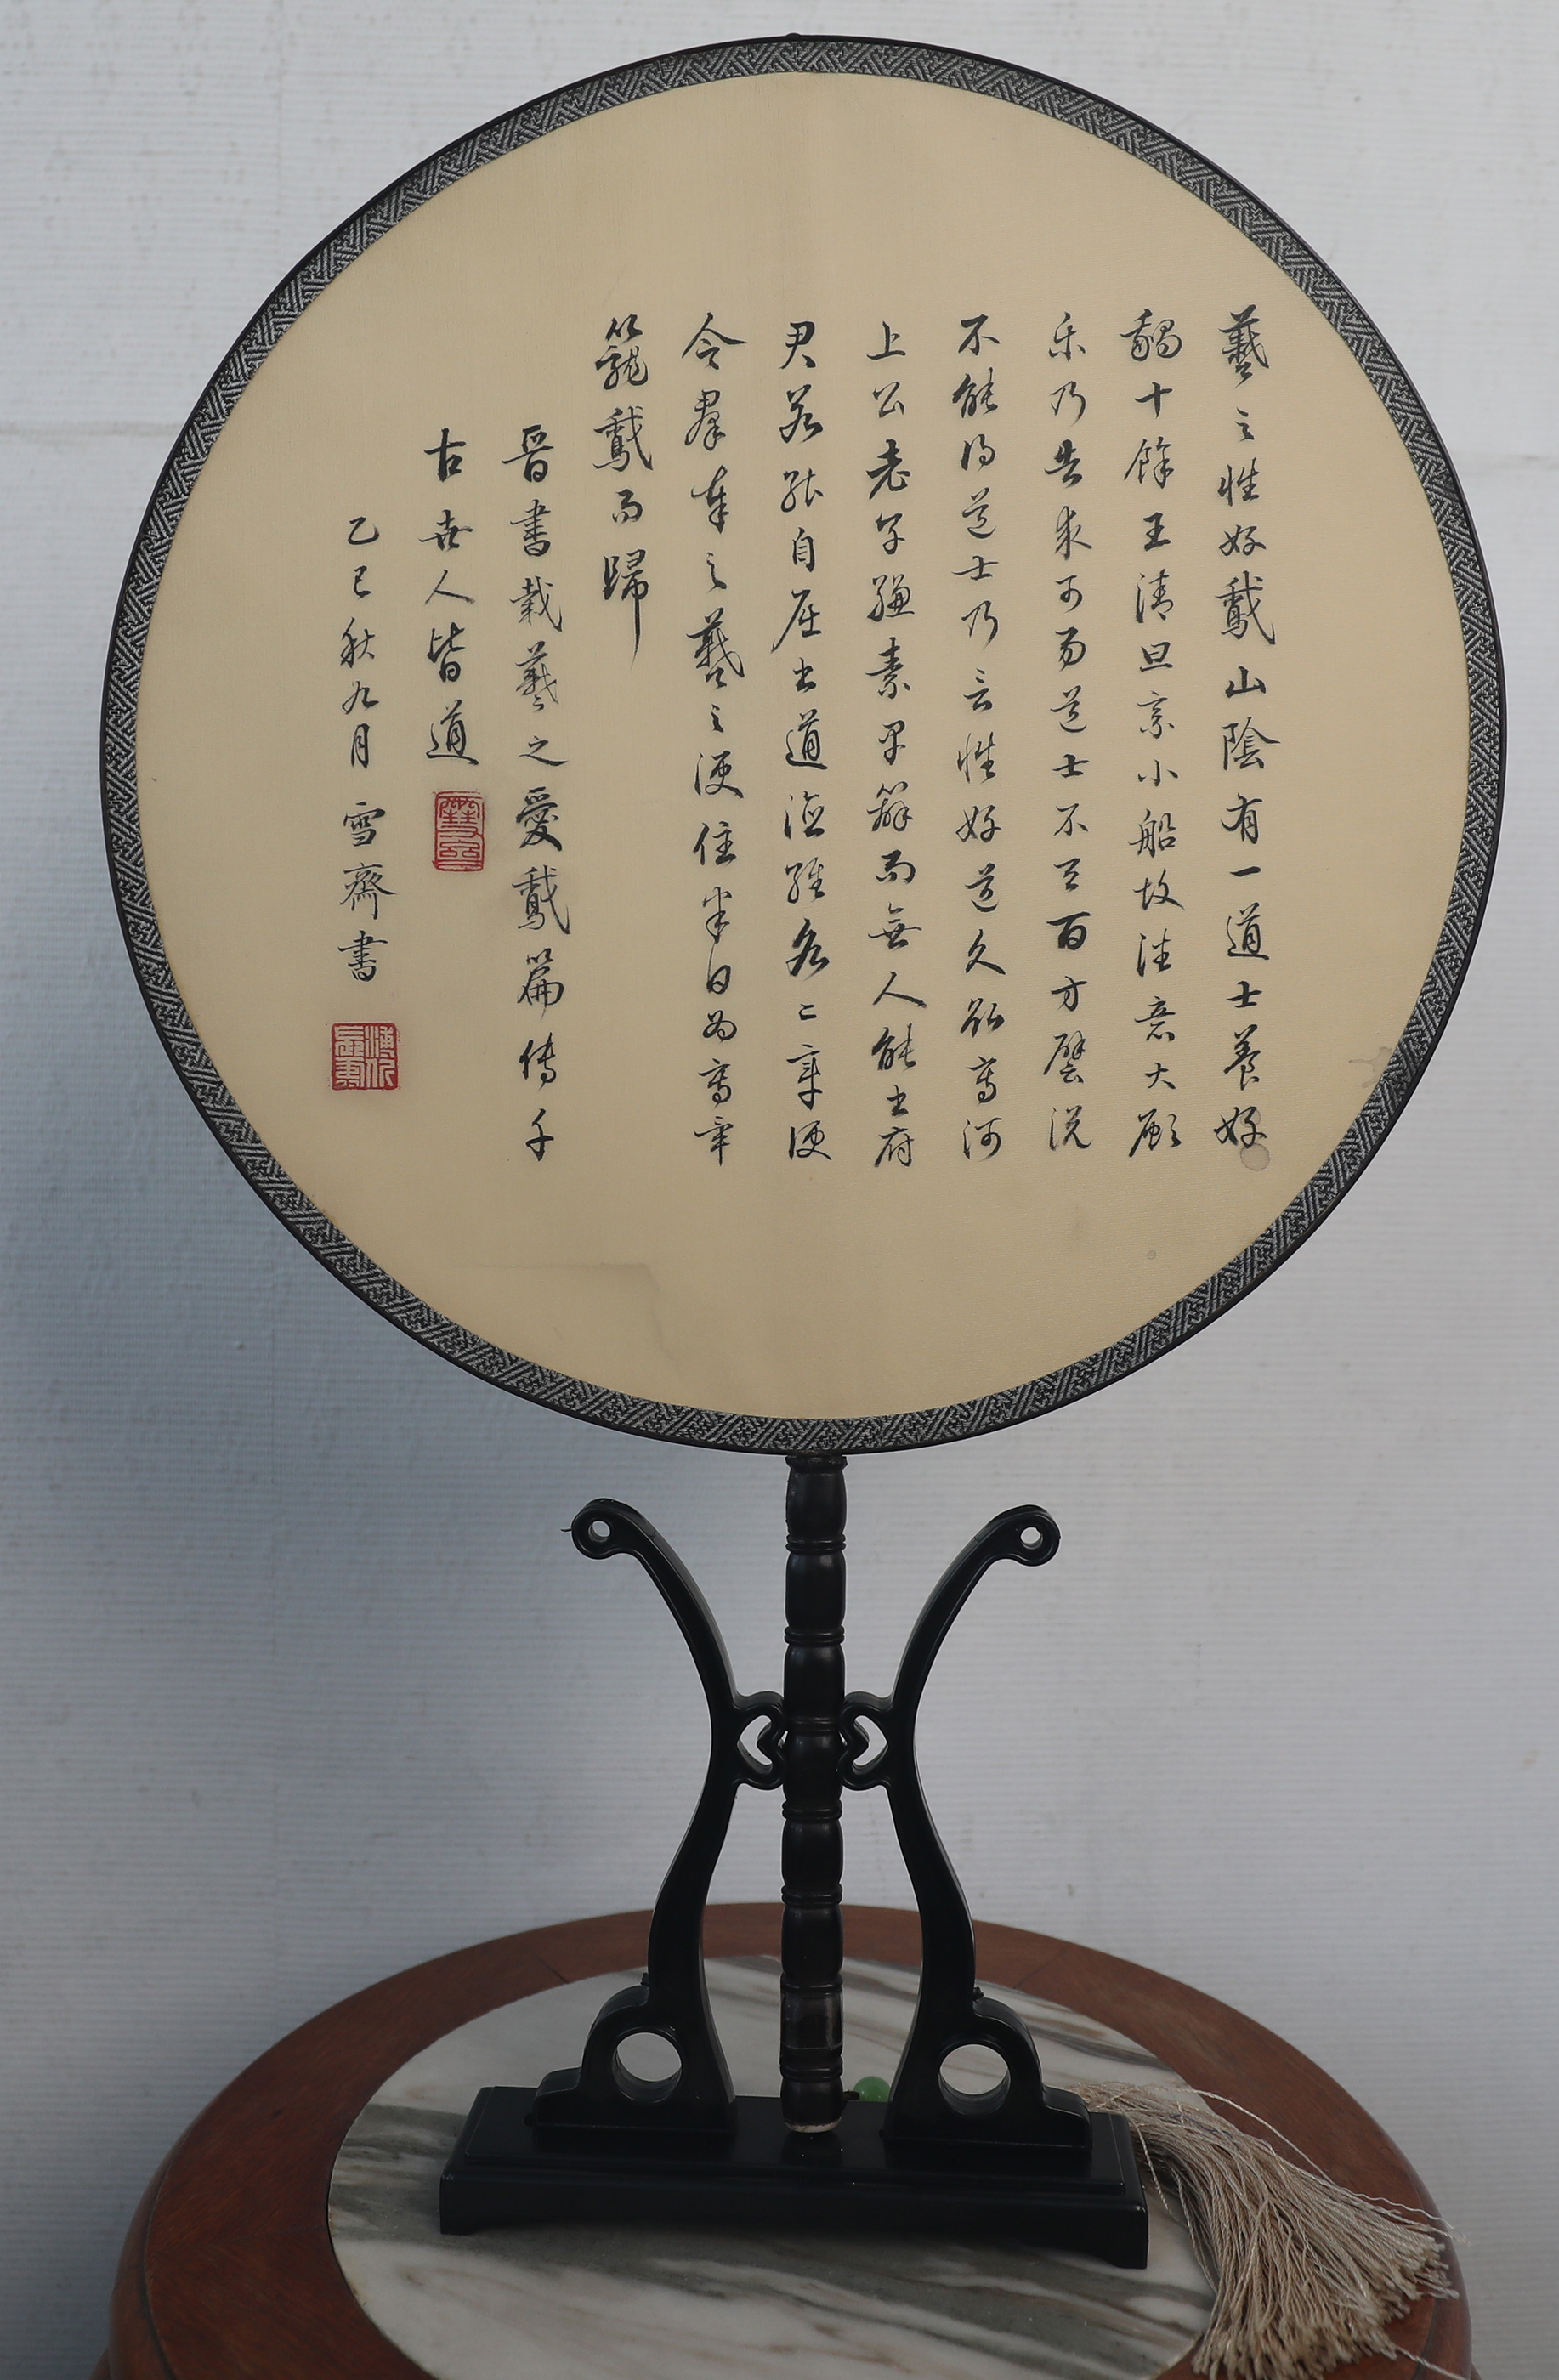 羲之性好鵞山陰有一道士養好
鵝十餘王清旦乘小船故往意大願
乐乃告求市易道士不與百方譬说
不能得道士乃言性好道久欲寫河
上公老子縑素早辦而無人能書府
君若能自屈書道德經各二章便
今羣奉之羲之便住半日為寫畢
籠鵞而歸
晉書載羲之愛鵞篇傳千
古世人皆道
乙巳秋九月 雪齋書